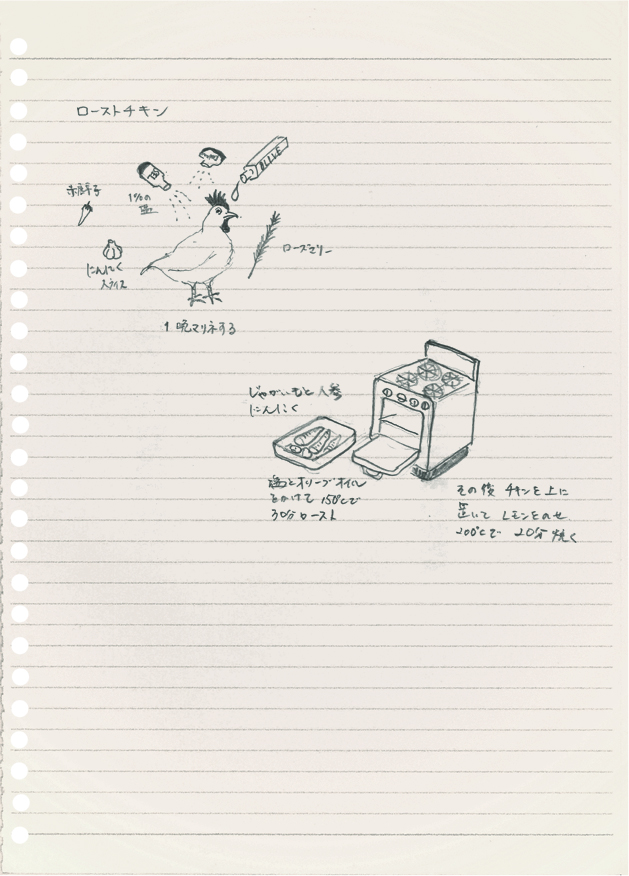 ローストチキン
赤唐辛子
1%の
塩
OLIVE
にんにく
スライス
ローズマリー
1晩マリネする
じゃがいもと人参
にんにく
塩とオリーブオイル
とかけて 150℃で
30分ロースト
その後 チキンを上に
置いて レモンをのせ
200℃で 20分 焼く